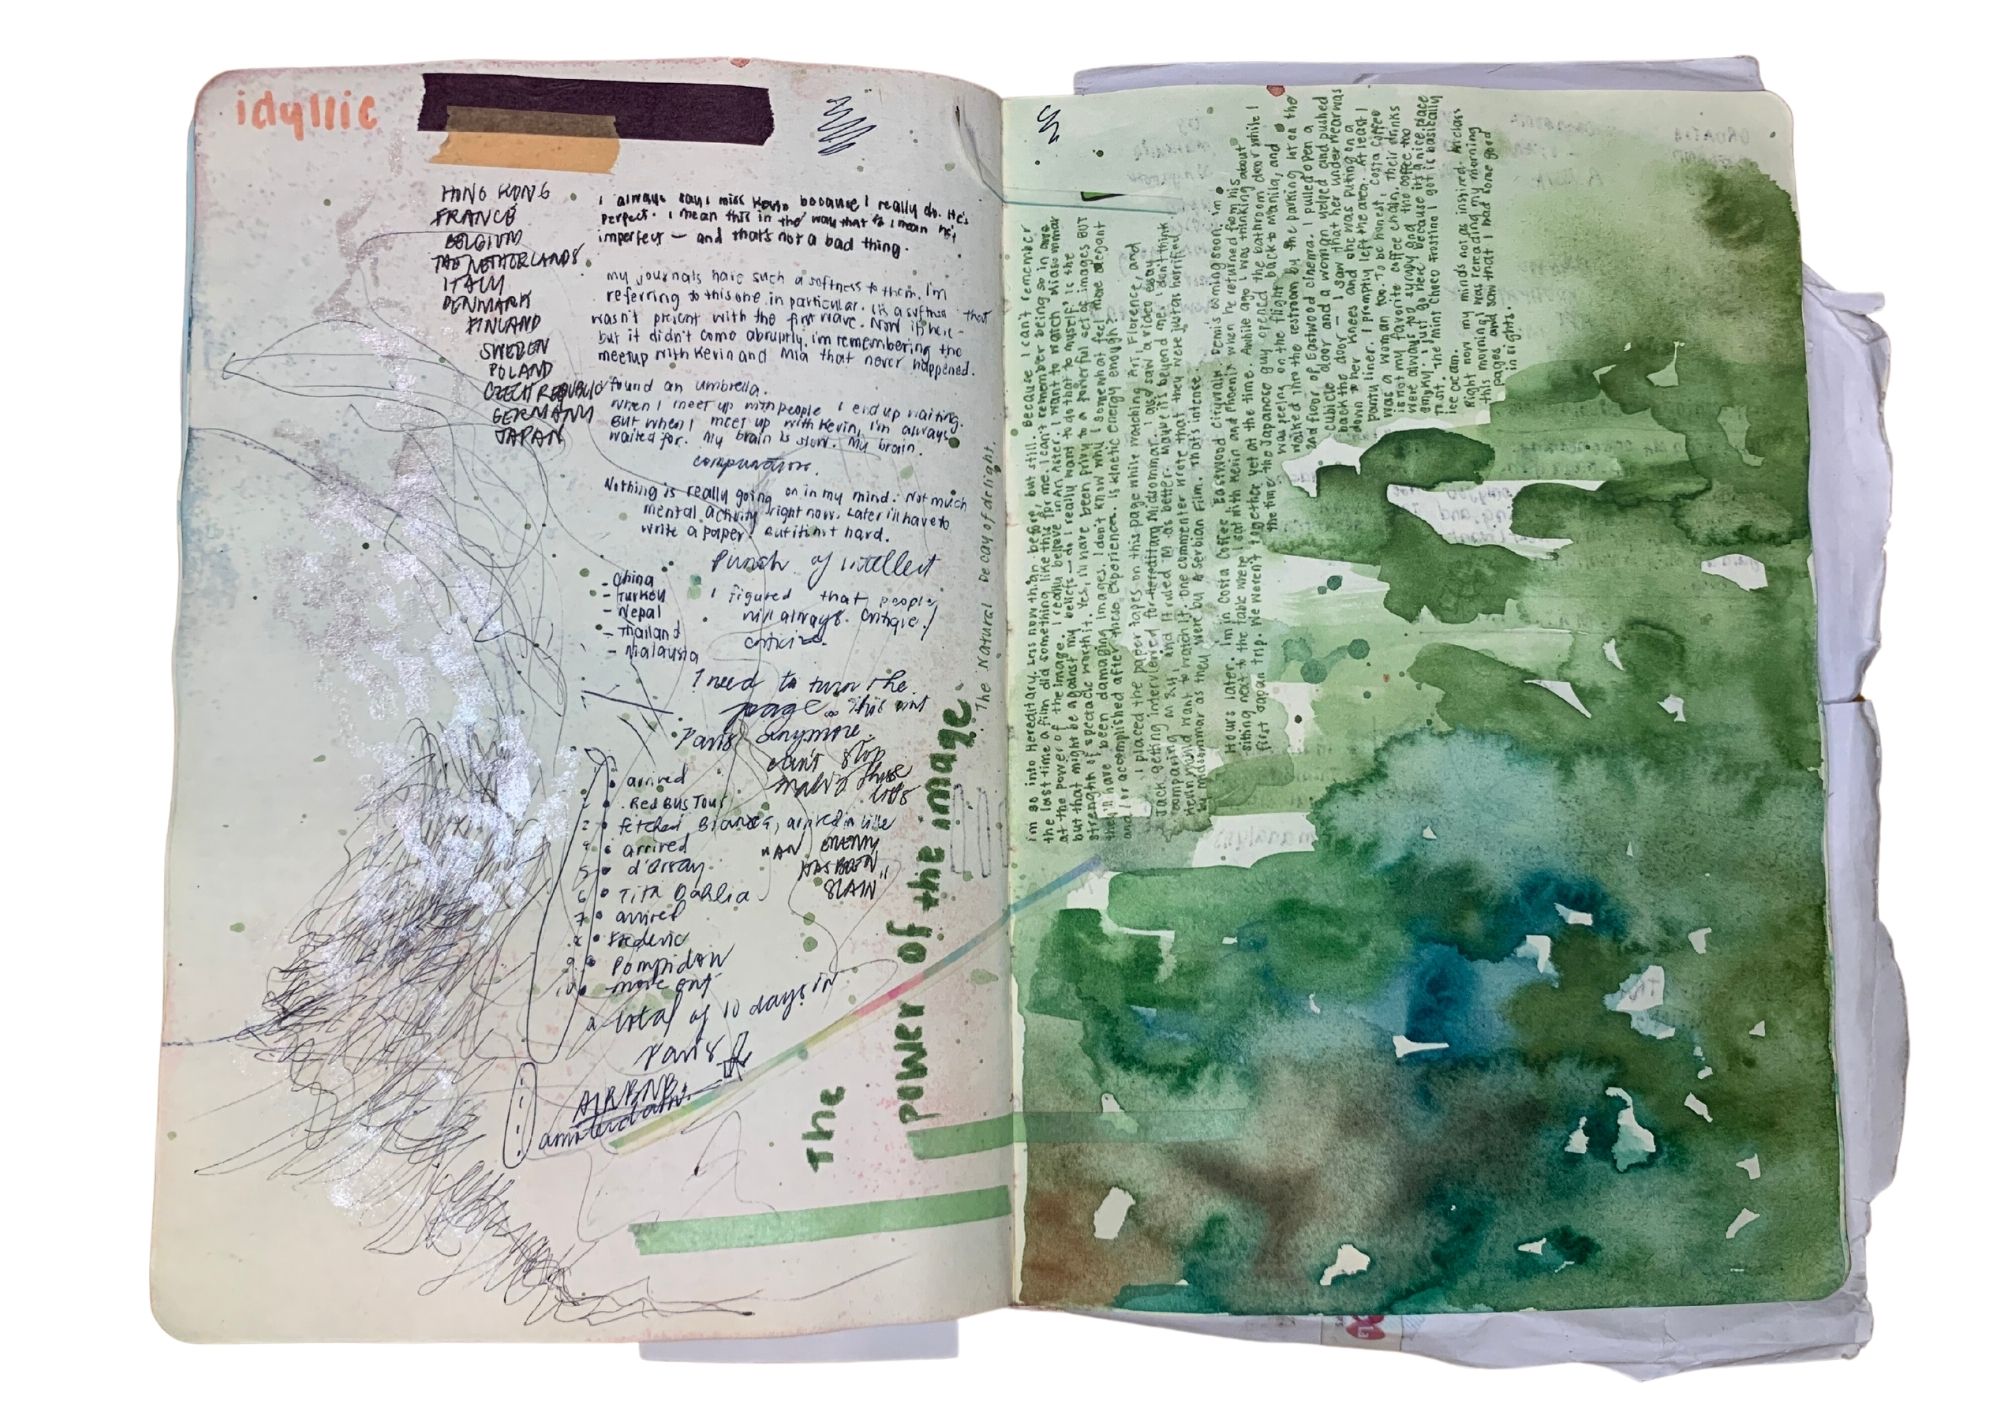 idyllic
HONG KONG
FRANCE
BELGIUM
THE NETHERLANDS
ITALY
DENMARK
FINLAND
SWEDEN
POLAND
CZECH REPUBLIC
GERMANY
JAPAN
I always say i miss Kevin because I really do. He's
perfect. I mean this in the way that I mean he's
imperfect — and that's not a bad thing.
my journals have such a softness to them. I'm
referring to this one in particular. It's a softness that
wasn't present with the first wave. Now it's here -
but it didn't come abruptly. i'm remembering the
meetup with Kevin and Mia that never happened.
found an umbrella.
When I meet up with people I end up waiting.
But when I meet up with Kevin, I'm always
waited for. My brain is slow. My brain.
computation.
Nothing is really going on in my mind. Not much
mental activity right now. Later i'll have to
write a paper. But it's not hard.
Punch of intellect
- China
- Turkey
- Nepal
- Thailand
- Malaysia
I figured that people
will always critique /
criticize.
I need to turn the
page. This isn't
Paris anymore.
can't stop
making these
lists
arrived
Red Bus Tour
fetched Bianca, arrived in Lille
4 arrived
5 d'Orsay
6 Tita Dahlia
7 arrived
8 Frederic
9 Pompidou
10 move out
"AN ENEMY
HAS BEEN
SLAIN"
a total of 10 days in
Paris
AIRBNB
amsterdam
The Natural Decay of delight
The power of the image.
i'm so into Hereditary. Less now than before, but still. Because I can't remember
the last time a film did something like this for me. I can't remember being so in awe
at the power of the image. I really believe in Ari Aster. I want to watch Midsommar
but that might be against my beliefs — do I really want to do that to myself? Is the
strength of spectacle worth it. Yes, i'll have been privy to a powerful set of images BUT
they'll have been damaging images. I don't know why I somehow feel more elegant
and/or accomplished after these experiences. Is kinetic energy enough?
I placed the paper tapes on this page while watching Ari, Florence, and
Jack getting interviewed for Midsommar. I also saw a video essay
comparing M & H and it ruled M as better. Maybe it's beyond me. I don't think
I would want to watch it. One commenter wrote that they were just as horrified
by midsommar as they were by A Serbian Film. That's intense.
Hours later. I'm in Costa Coffee Eastwood citywalk. Demi's coming soon; i'm
sitting next to the table where I sat with Kevin and Phoenix when he returned from his
first Japan trip. We weren't together yet at the time. Awhile ago I was thinking about
the time the Japanese guy opened the bathroom door while I
was peeing on the flight back to Manila, and
walked into the restroom by the parking lot on the
2nd floor of Eastwood cinema. I pulled open a
cubicle door and a woman yelped and pushed
back the door — I saw that her underwear was
down to her knees and she was putting on a
panty liner. I promptly left the area. At least I
was a woman too. To be honest, Costa Coffee
is not my favorite coffee chain. Their drinks
were always too syrupy and the coffee too
I just go here because it's a nice place
Trust. The Mint Choco Frostino I got is basically
ice cream.
Right now my mind's not as inspired. In class
this morning I was rereading my morning
pages and saw that I had some good
insights.